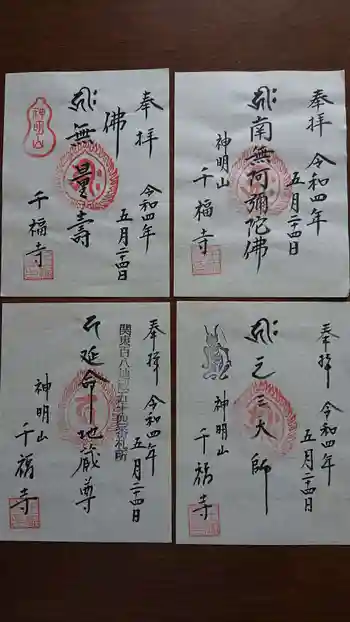 奉拝
令和四年
五月二十四日
佛
無量壽
神明山
千福寺
奉拝
令和四年
五月二十四日
南無阿彌陀佛
神明山
千福寺
奉拝
令和四年
五月二十四日
関東百八地蔵
延命地蔵尊
神明山
千福寺
奉拝
令和四年
五月二十四日
元三大師
神明山
千福寺